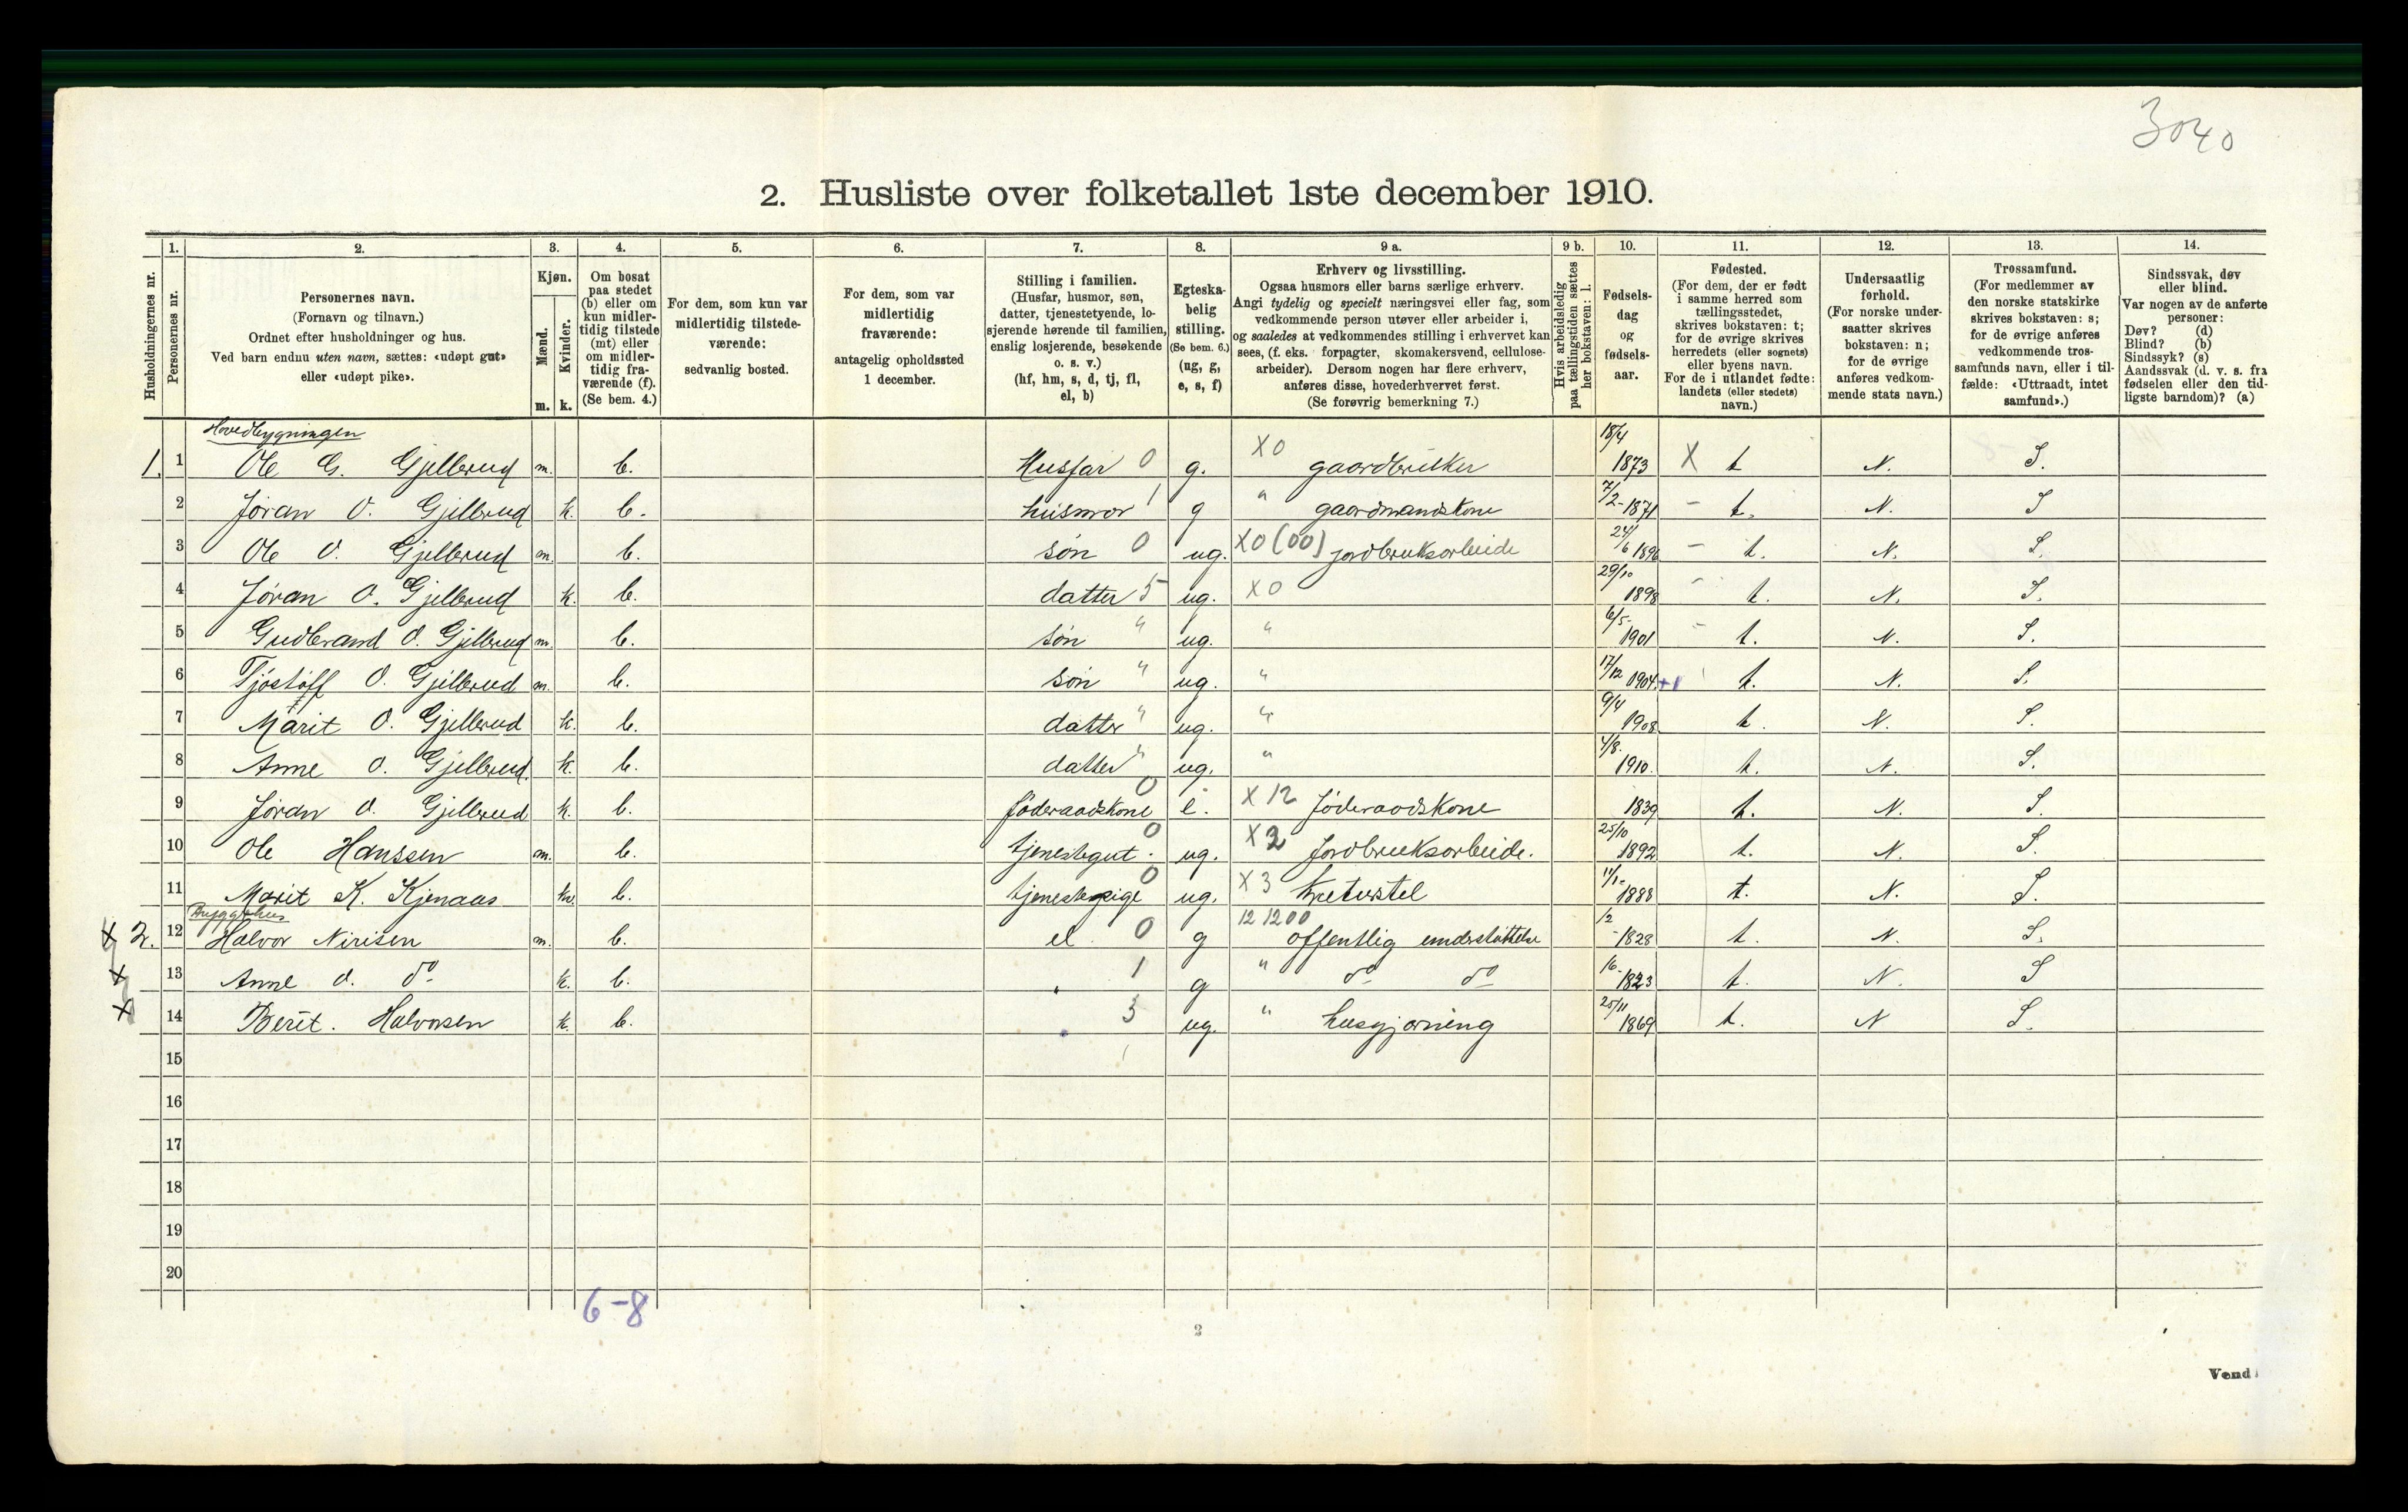 3040
2. Husliste over folketallet 1ste december 1910.
Husholdningernes nr.
1.
Personernes nr.
2.
Personernes navn.
(Fornavn og tilnavn.)
Ordnet efter husholdninger og hus.
Ved barn endnu uten navn, sættes: «udøpt gut»
eller «udøpt pike».
3.
Kjøn.
Mænd.
Kvinder.
m. k.
4.
Om bosat
paa stedet
(b) eller om
kun midler-
tidig tilstede
(mt) eller
om midler-
tidig fra-
værende (f).
(Se bem. 4.)
5.
For dem, som kun var
midlertidig tilstede-
værende:
sedvanlig bosted.
6.
For dem, som var
midlertidig
fraværende:
antagelig opholdssted
1 december.
7.
Stilling i familien.
(Husfar, husmor, søn,
datter, tjenestetyende, lo-
sjerende hørende til familien,
enslig losjerende, besøkende
o. s. v.)
(hf, hm, s, d, tj, fl,
el, b)
8.
Egteska-
belig
stilling.
(Se bem. 6.)
(ug, g,
e, s, f)
9 a.
Erhverv og livsstilling.
Ogsaa husmors eller barns særlige erhverv.
Angi tydelig og specielt næringsvei eller fag, som
vedkommende person utøver eller arbeider i,
og saaledes at vedkommendes stilling i erhvervet kan
sees, (f. eks. forpagter, skomakersvend, cellulose-
arbeider). Dersom nogen har flere erhverv,
anføres disse, hovederhvervet først.
(Se forøvrig bemerkning 7.)
9 b.
Hvis arbeidsledig
paa tællingstiden sættes
her bokstaven: l.
10.
Fødsels-
dag
og
fødsels-
aar.
11.
Fødested.
(For dem, der er født
i samme herred som
tællingsstedet,
skrives bokstaven: t;
for de øvrige skrives
herredets (eller sognets)
eller byens navn.
For de i utlandet fødte:
landets (eller stedets)
navn.)
12.
Undersaatlig
forhold.
(For norske under-
saatter skrives
bokstaven: n;
for de øvrige
anføres vedkom-
mende stats navn.)
13.
Trossamfund.
(For medlemmer av
den norske statskirke
skrives bokstaven: s;
for de øvrige anføres
vedkommende tros-
samfunds navn, eller i til-
fælde: «Uttraadt, intet
samfund».)
14.
Sindssvak, døv
eller blind.
Var nogen av de anførte
personer:
Døv? (d)
Blind? (b)
Sindssyk? (s)
Aandssvak (d. v. s. fra
fødselen eller den tid-
ligste barndom)? (a)
Hovedbygningen
1. 1 Ole G. Gjellerud m. b. Husfar 0 g. X0 gaardbruker 18/4 1873 X t N. S.
2 Jøran O. Gjellerud k. b. husmor 1 g " gaardmandskone 7/2-1871 - t. N. S
3 Ole O. Gjellerud m. b. søn 0 ug. X0(00) jordbruksarbeide 24/6 1896 - t. N. S.
4 Jøran O. Gjellerud k. b. datter 5 ug. X0 29/10 1898 - t. N. S.
5 Gudbrand O. Gjellerud m. b. søn " ug. " 6/5- 1901 - t. N. S.
6 Tjøstolf O. Gjellerud m. b. søn " ug. " 17/12 1904 +1 t. N. S.
7 Marit O. Gjellerud k. b. datter " ug. " 9/4 1908 t. N. S.
8 Anne O. Gjellerud. k. b. datter " ug. " 4/8. 1910. t. N. S.
9 Jøran O. Gjellerud k. b. føderaadskone 0 e. X 12 føderaadskone 1839 t. N. S.
10 Ole Hanssen m. b. tjenestegut. 0 ug. X2 Jordbruksarbeide. 25/10 1892 t. N. S.
11 Marit K. Kjenaas k. b. tjenestepige 0 ug. X3 kreaturstel 11/1- 1888 t. N. S.
Bryggehus
X 2. 12 Halvor Nirisen m. b. el 0 g 12 1200 offentlig understøttelse 1/2 -1828 t. N. S.
X 13 Anne O. do k. b. " 1 g " do do 16- 1823 t. N. S
X 14 Berit. Halvorsen k. b. " 3 ug. " husgjærning 25/11 1869 t. N S.
15
16
17
18
19
20
6-8
2
Vend